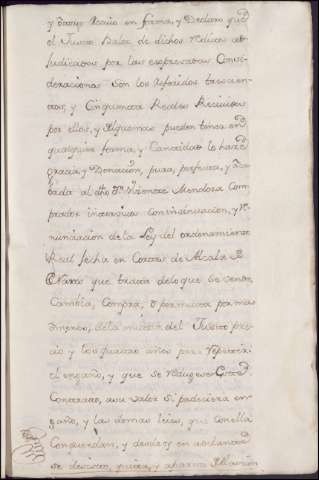 y otorgo Recivo en forma, y Declaro que
el Justo Valor de dichos reditos ad-
judicados por las expresadas Consi-
deraciones son los referidos trescien-
tos, y Cinquenta Reales Recividos
por ellos, y si algo mas pueden tener en
qualquier forma, y Cantidad le hace
gracia y Donacion, pura, perfecta, y
al dho Dn Vicente Mendoza Com-
prador intervivos con insinuacion, y re-
nunciacion de la Ley del ordenamiento
Real fecha en Cortes de Alcala de
Nares que trata de lo que se vende,
Cambia, Compra, o permuta por mas
o menos, de la mitad del Justo pre-
cio y los quatro años para repetir
el engaño, y que se reduxese
Contrato, a su valor si padeciera en-
gaño, y las demas leies, que con ella
Concuerdan, y desde oy en adelante
se desiste, quita, y aparta